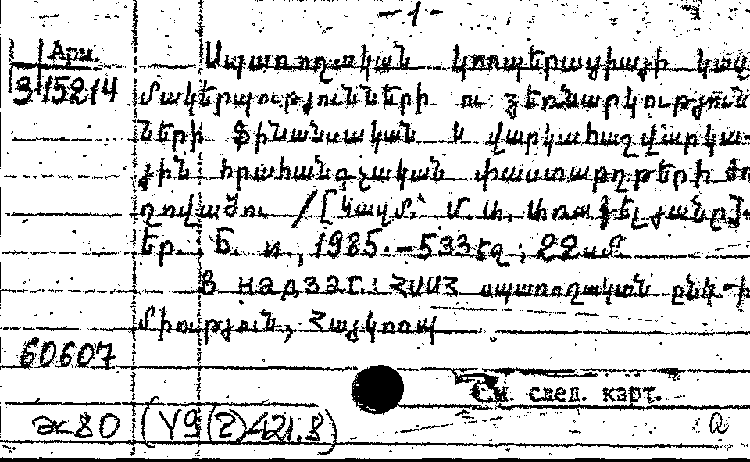 -1-
Арм. Սպառողական կոոպերացիայի կազ
3-15214 մակերպությունների ու ձեռնարկություն
ների ֆինանսական և վարկահաշվարկա-
յին հրահանգչական փաստաթղթերի ժո
ղովածու / [Կազմ.՝ Մ. Ա. Առաքելյանը].-
Եր. Б. и, 1985.-533 էջ; 22 սմ
В надзаг.: ՀՍՍՀ սպառողական ընկ-ի
միություն, Հայկոոպ
60607
См. след. карт.
ж80 (У9(2)421.8) a